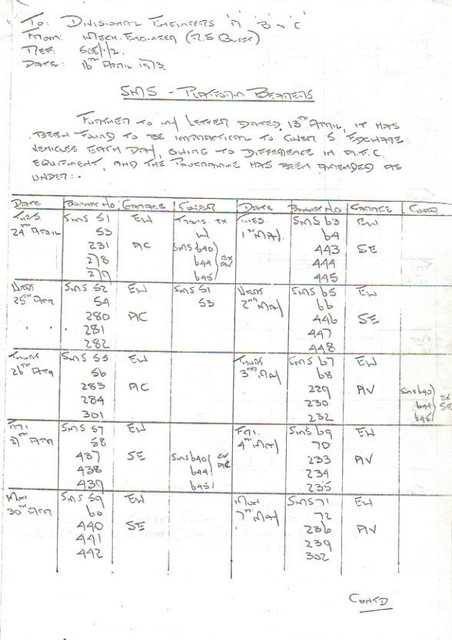 To: Divisional Engineers 'A' 'B' & 'C'
From: Mech. Engineer (R.S
Ref: 505/1/2.
Date: 16th April 1973.
SMS - Platform Bearers
Further to my letter dated, 13th April, it has
been found to be impractical to cover 5 Edgware
vehicles each day, owing to difference in A.F.C.
equipment, and the programme has been amended as
under:-
Date Bonnet No Garage Cover Date Bonnet No Garage Cover
Tues SMS 51 EW Trans. ex Tues. SMS 63 EW
24th April 53 W 1st May. 64
231 AC SMS 640 443 SE
278 644 ex AV 444
279 645 445
Weds SMS 52 EW SMS 51 Weds SMS 65 EW
25th Apr 54 53 2nd May 66
280 AC 446 SE
281 447
282 448
Thurs SMS 55 EW Thurs SMS 67 EW
26th Apr 56 3rd May 68
283 AC 229 AV SMS 640
284 230 644 ex SE
301 232 645
Fri SMS 57 EW Fri. SMS 69 EW
27th Apr 58 4th May 70
437 SE SMS 640 ex AC 233 AV
438 644 234
439 645 235
Mon SMS 59 EW Mon SMS 71 EW
30th Apr 60 7th May 72
440 SE 236 AV
441 239
442 302
Contd